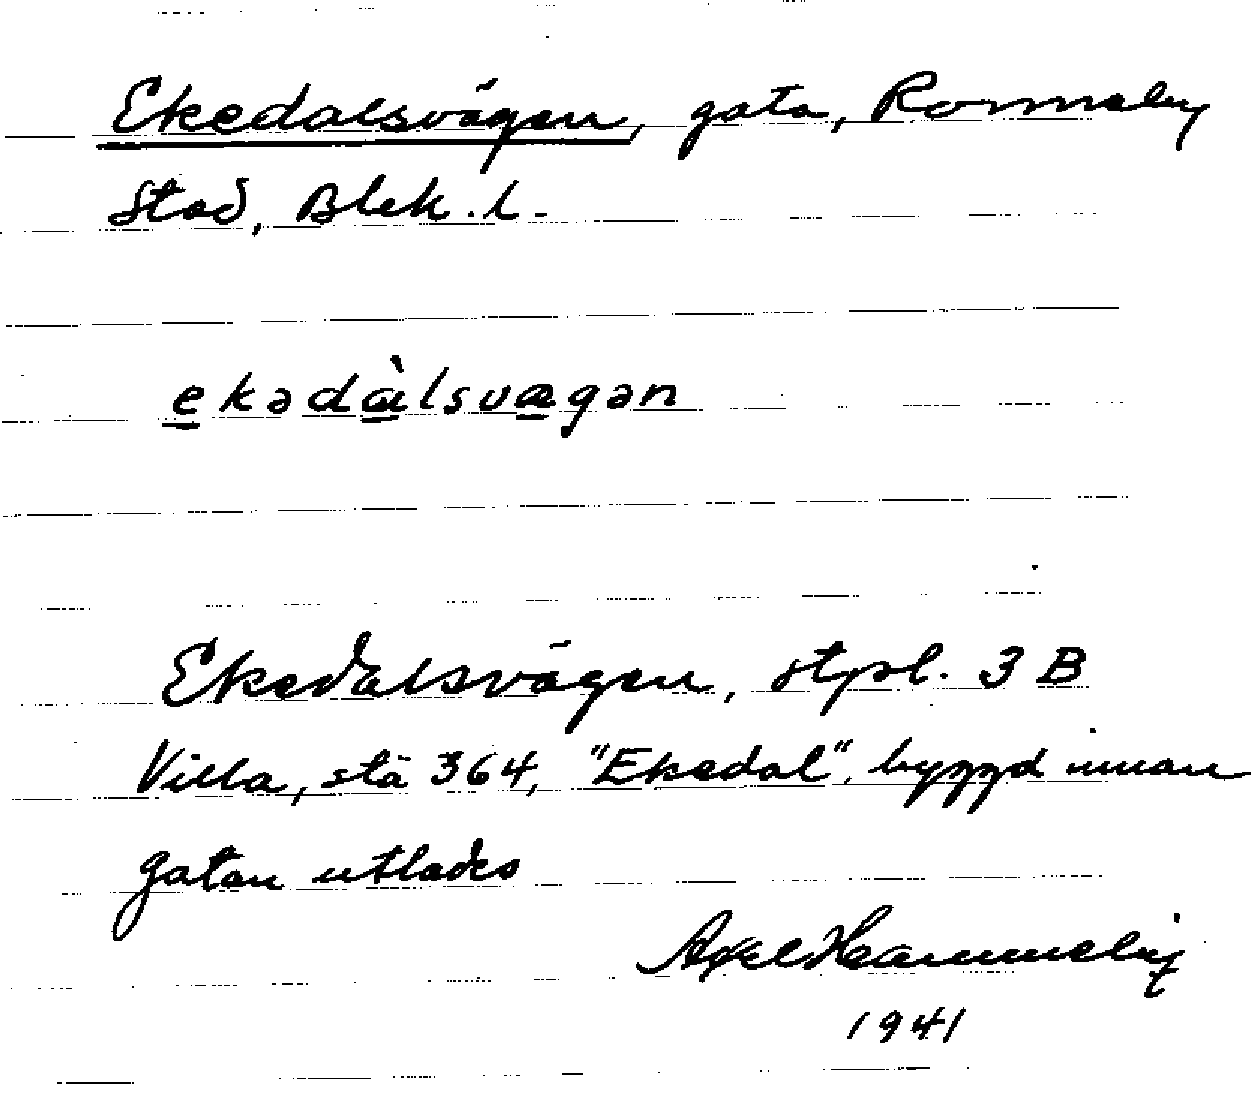 Ekedalsvägen, gata, Ronneby
Stad, Blek. l.
ekədàlsvægən
Ekedalsvägen, stpl. 3 B
Villa, stä 364, "Ekedal", byggd innan
gatan utlades
Axel Hammelig
1941